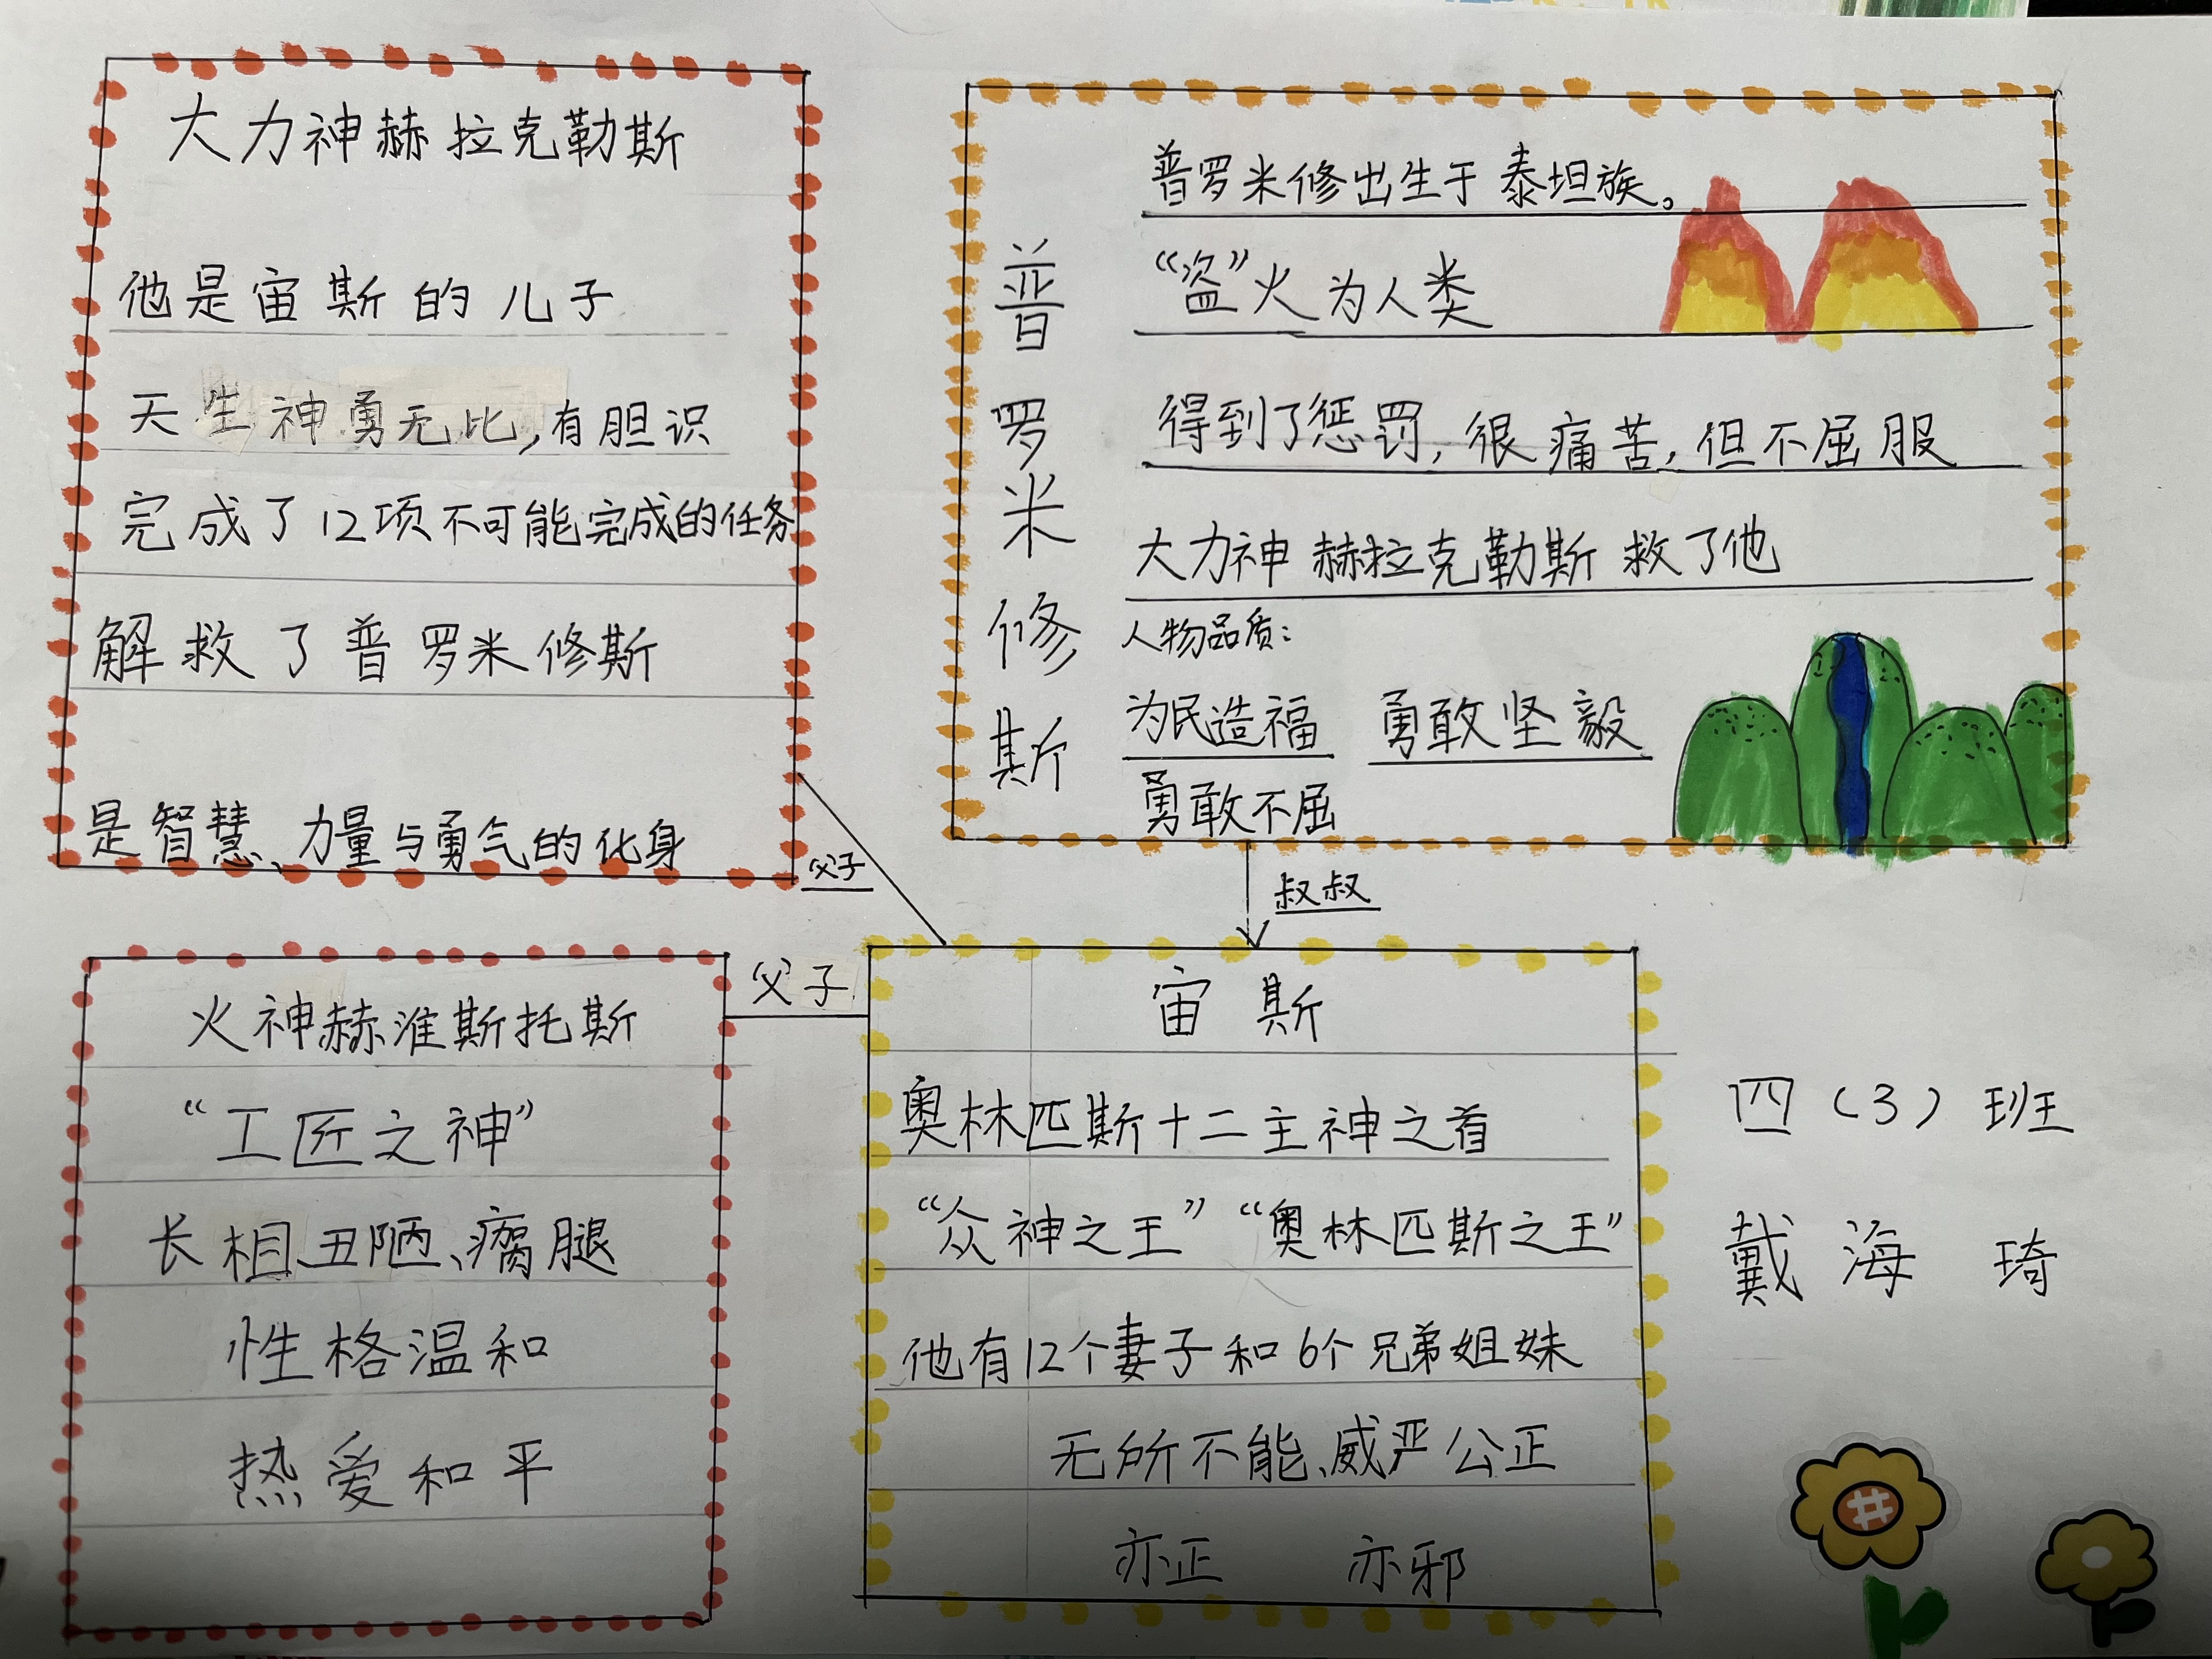 大力神赫拉克勒斯
他是宙斯的儿子
天生神勇无比,有胆识
完成了12项不可能完成的任务
解救了普罗米修斯
是智慧、力量与勇气的化身
普罗米修斯
普罗米修出生于泰坦族。
“盗”火为人类
得到了惩罚,很痛苦,但不屈服
大力神赫拉克勒斯救了他
人物品质:
为民造福 勇敢坚毅
勇敢不屈
父子
叔叔
父子
火神赫淮斯托斯
“工匠之神”
长相丑陋、瘸腿
性格温和
热爱和平
宙斯
奥林匹斯十二主神之首
“众神之王”“奥林匹斯之王”
他有12个妻子和6个兄弟姐妹
无所不能、威严公正
亦正 亦邪
四(3)班
戴海琦